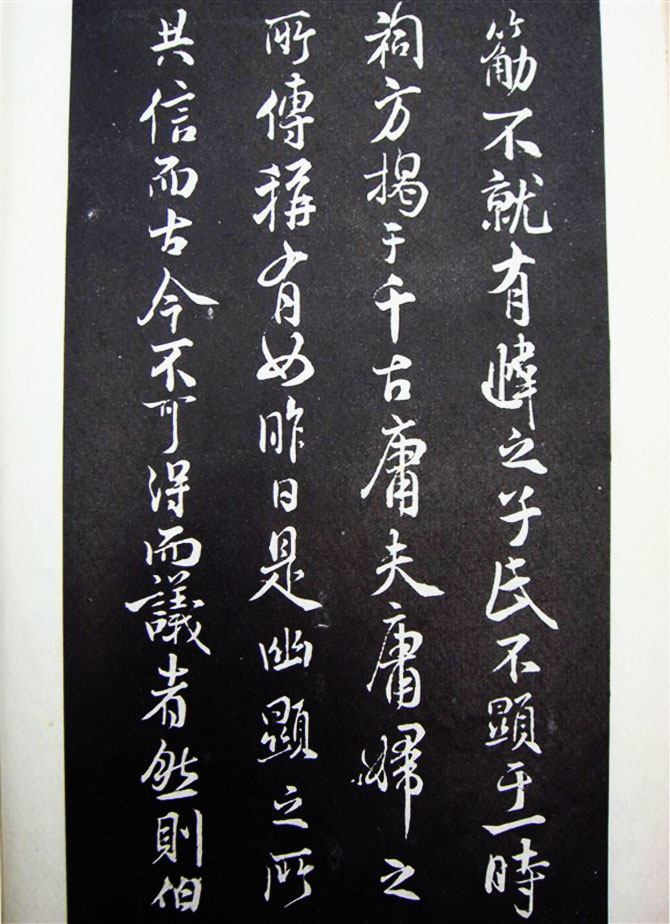 不就有之不顯于一時
祠方揭于千古庸夫庸婦之
所傳稱有如昨日是幽顯之所
共信而古今不可得而議者然則伯